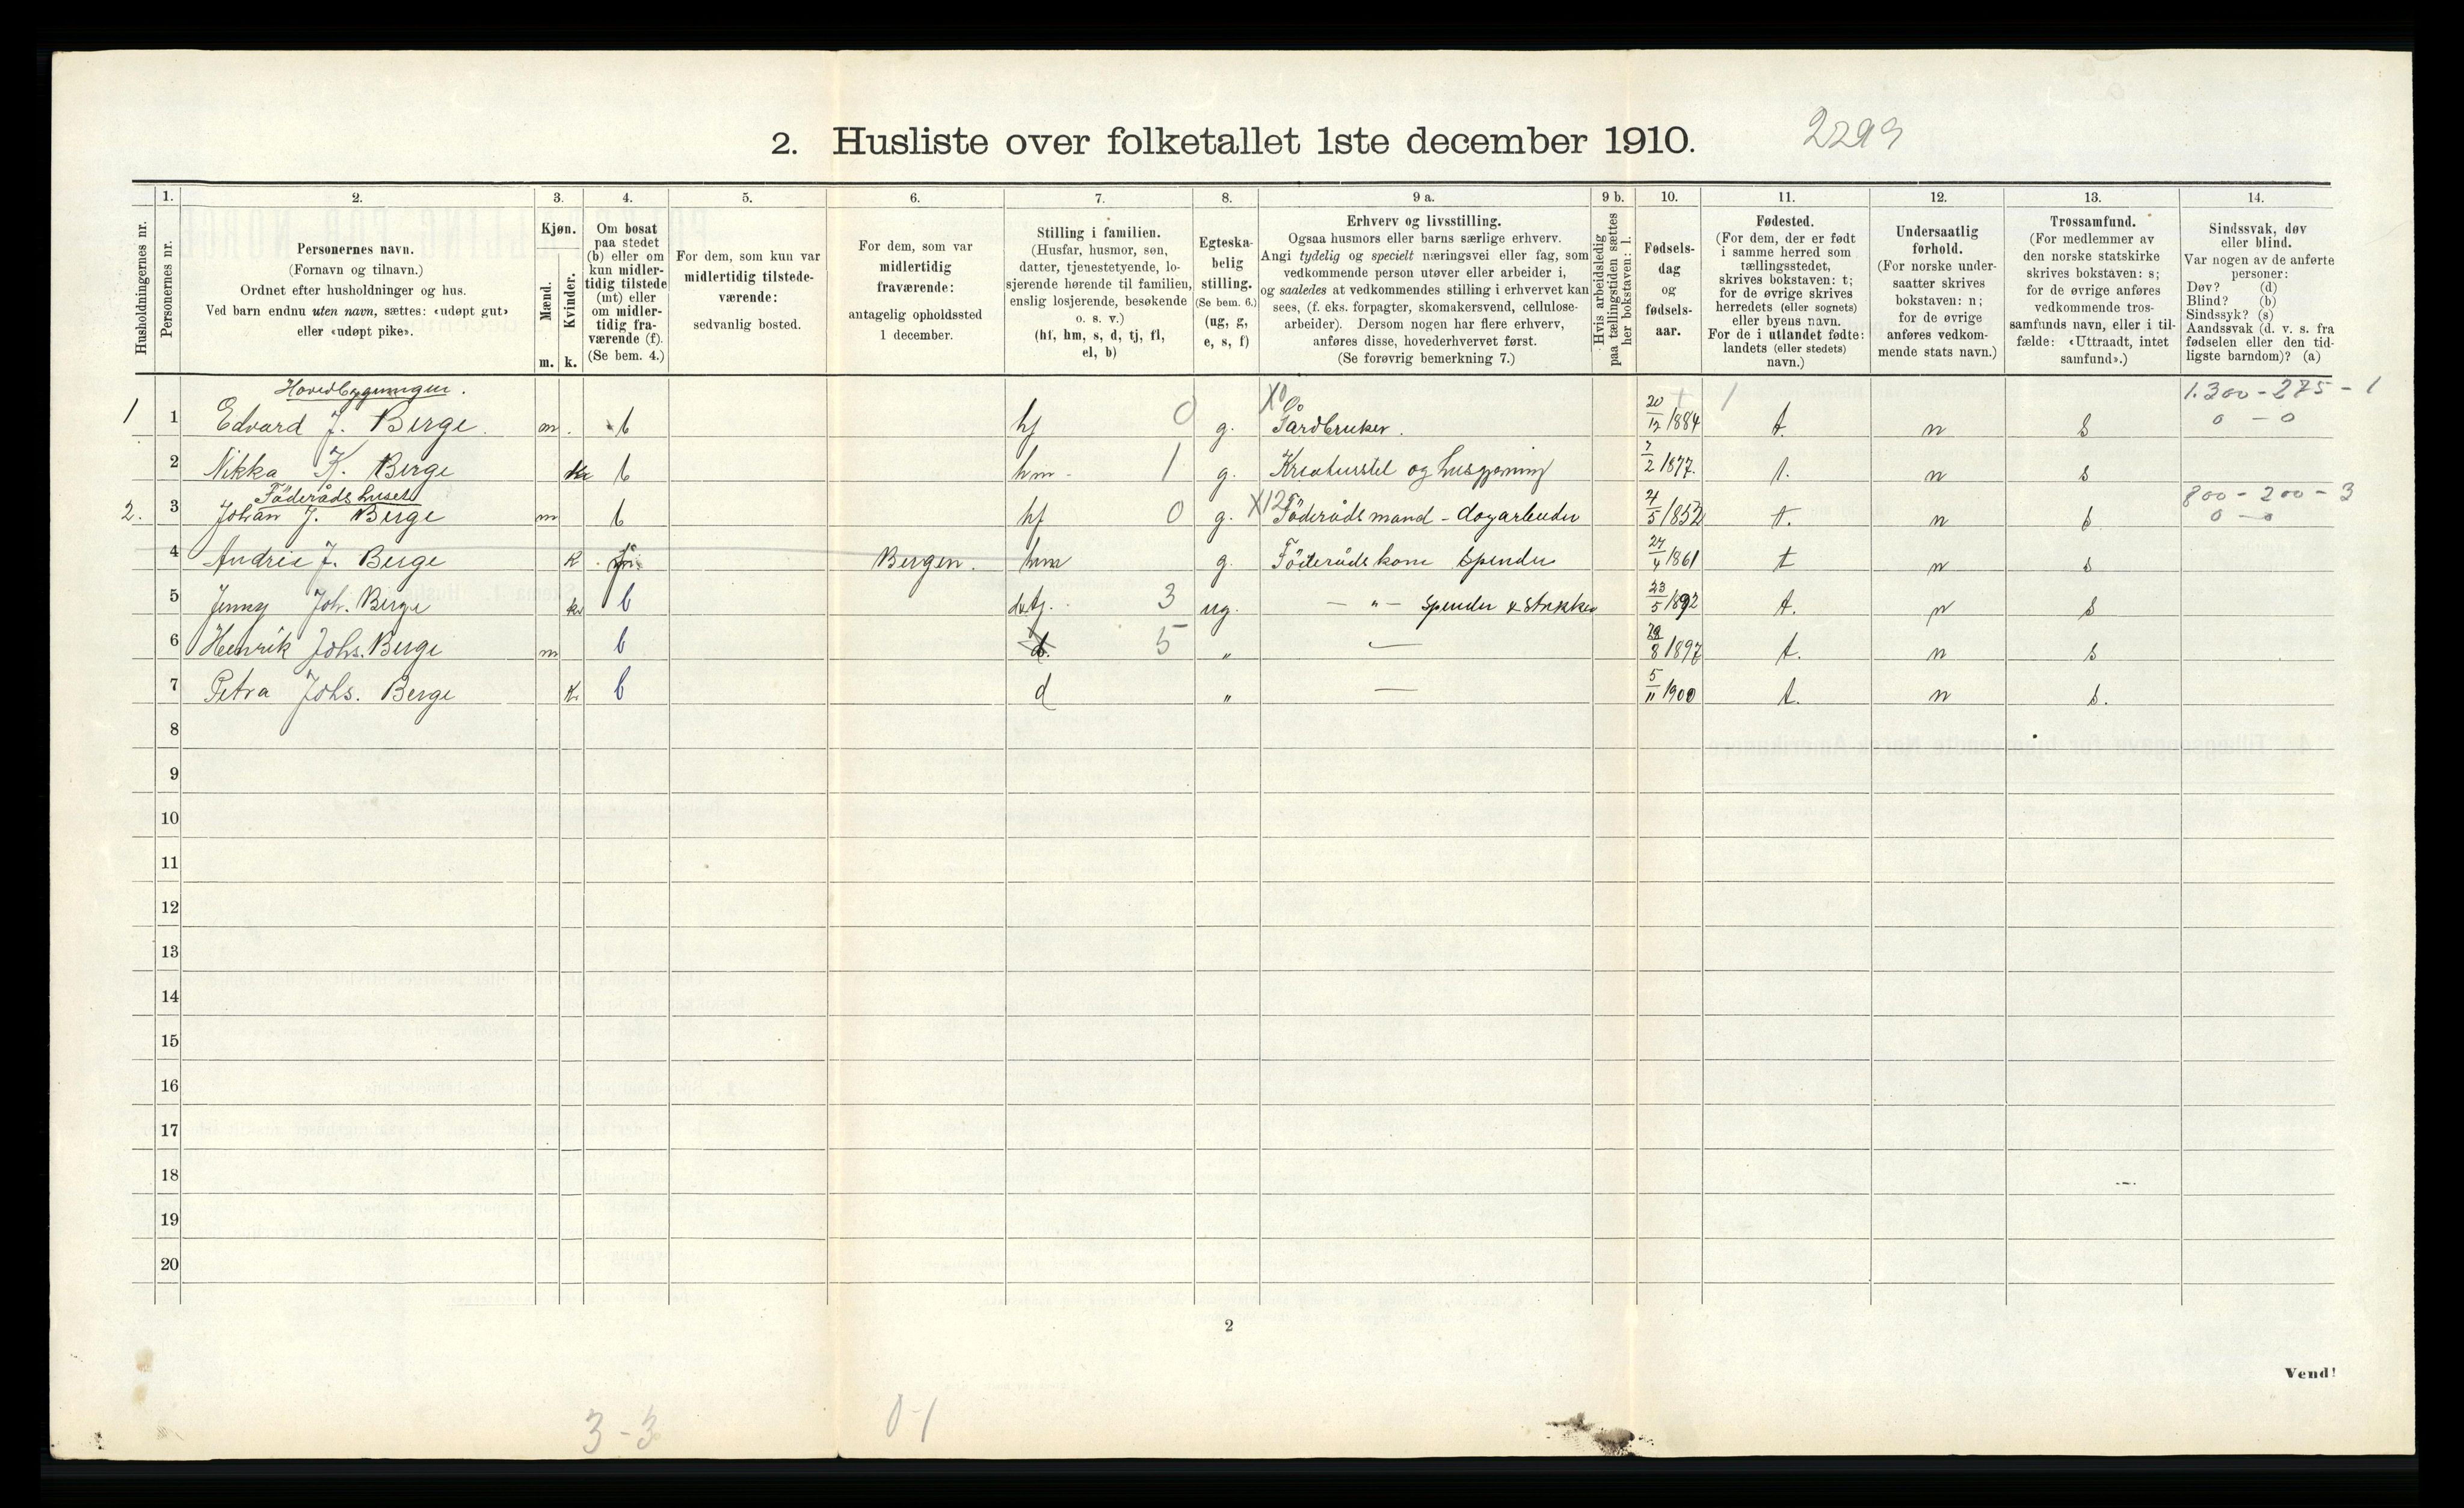 2. Husliste over folketallet 1ste december 1910. 2299
Husholdningernes nr.
1. Personernes nr.
2. Personernes navn.
(Fornavn og tilnavn.)
Ordnet efter husholdninger og hus.
Ved barn endnu uten navn, sættes: «udøpt gut»
eller «udøpt pike».
3. Kjøn.
Mænd. m.
Kvinder. k.
4. Om bosat
paa stedet
(b) eller om
kun midler-
tidig tilstede
(mt) eller
om midler-
tidig fra-
værende (f).
(Se bem. 4.)
5. For dem, som kun var
midlertidig tilstede-
værende:
sedvanlig bosted.
6. For dem, som var
midlertidig
fraværende:
antagelig opholdssted
1 december.
7. Stilling i familien.
(Husfar, husmor, søn,
datter, tjenestetyende, lo-
sjerende hørende til familien,
enslig losjerende, besøkende
o. s. v.)
(hf, hm, s, d, tj, fl,
el, b)
8. Egteska-
belig
stilling.
(Se bem. 6.)
(ug, g,
e, s, f)
9 a. Erhverv og livsstilling.
Ogsaa husmors eller barns særlige erhverv.
Angi tydelig og specielt næringsvei eller fag, som
vedkommende person utøver eller arbeider i,
og saaledes at vedkommendes stilling i erhvervet kan
sees, (f. eks. forpagter, skomakersvend, cellulose-
arbeider). Dersom nogen har flere erhverv,
anføres disse, hovederhvervet først.
(Se forøvrig bemerkning 7.)
9 b. Hvis arbeidsledig
paa tællingstiden sættes
her bokstaven: l.
10. Fødsels-
dag
og
fødsels-
aar.
11. Fødested.
(For dem, der er født
i samme herred som
tællingsstedet,
skrives bokstaven: t;
for de øvrige skrives
herredets (eller sognets)
eller byens navn.
For de i utlandet fødte:
landets (eller stedets)
navn.)
12. Undersaatlig
forhold.
(For norske under-
saatter skrives
bokstaven: n;
for de øvrige
anføres vedkom-
mende stats navn.)
13. Trossamfund.
(For medlemmer av
den norske statskirke
skrives bokstaven: s;
for de øvrige anføres
vedkommende tros-
samfunds navn, eller i til-
fælde: «Uttraadt, intet
samfund».)
14. Sindssvak, døv
eller blind.
Var nogen av de anførte
personer:
Døv? (d)
Blind? (b)
Sindssyk? (s)
Aandssvak (d. v. s. fra
fødselen eller den tid-
ligste barndom)? (a)
Hovedbygningen. 1.300 - 275 - 1
1 1 Edvard J. Berge. m. b hf 0 X0 g. Gardbruker. 20/12 1884 t. n s 0 - 0
2 Nikka K. Berge k b hm - 1 g. Kreaturstel og husgjerning 7/2 1877. t. n s
Föderådshuset 800 - 200 - 3
2. 3 Johan J. Berge m b hf 0 g. X12 Föderådsmand - dagarbeider 21/5 1852 t. n s 0 - 0
4 Andrea J. Berge k f Bergen. hm g. Föderådskone Spinder 24/4 1861 t n s
5 Jenny Joh. Berge k b d tj. 3 ug. - " - Spinder & strikker 23/5 1892 t. n s
6 Henrik Johs. Berge m b 5 " — /8 1897 t. n s
7 Petra Johs. Berge k b d " — 5/11 1900 t. n s.
8
9
10
11
12
13
14
15
16
17
18
19
20
2
Vend!
3 - 3 0-1